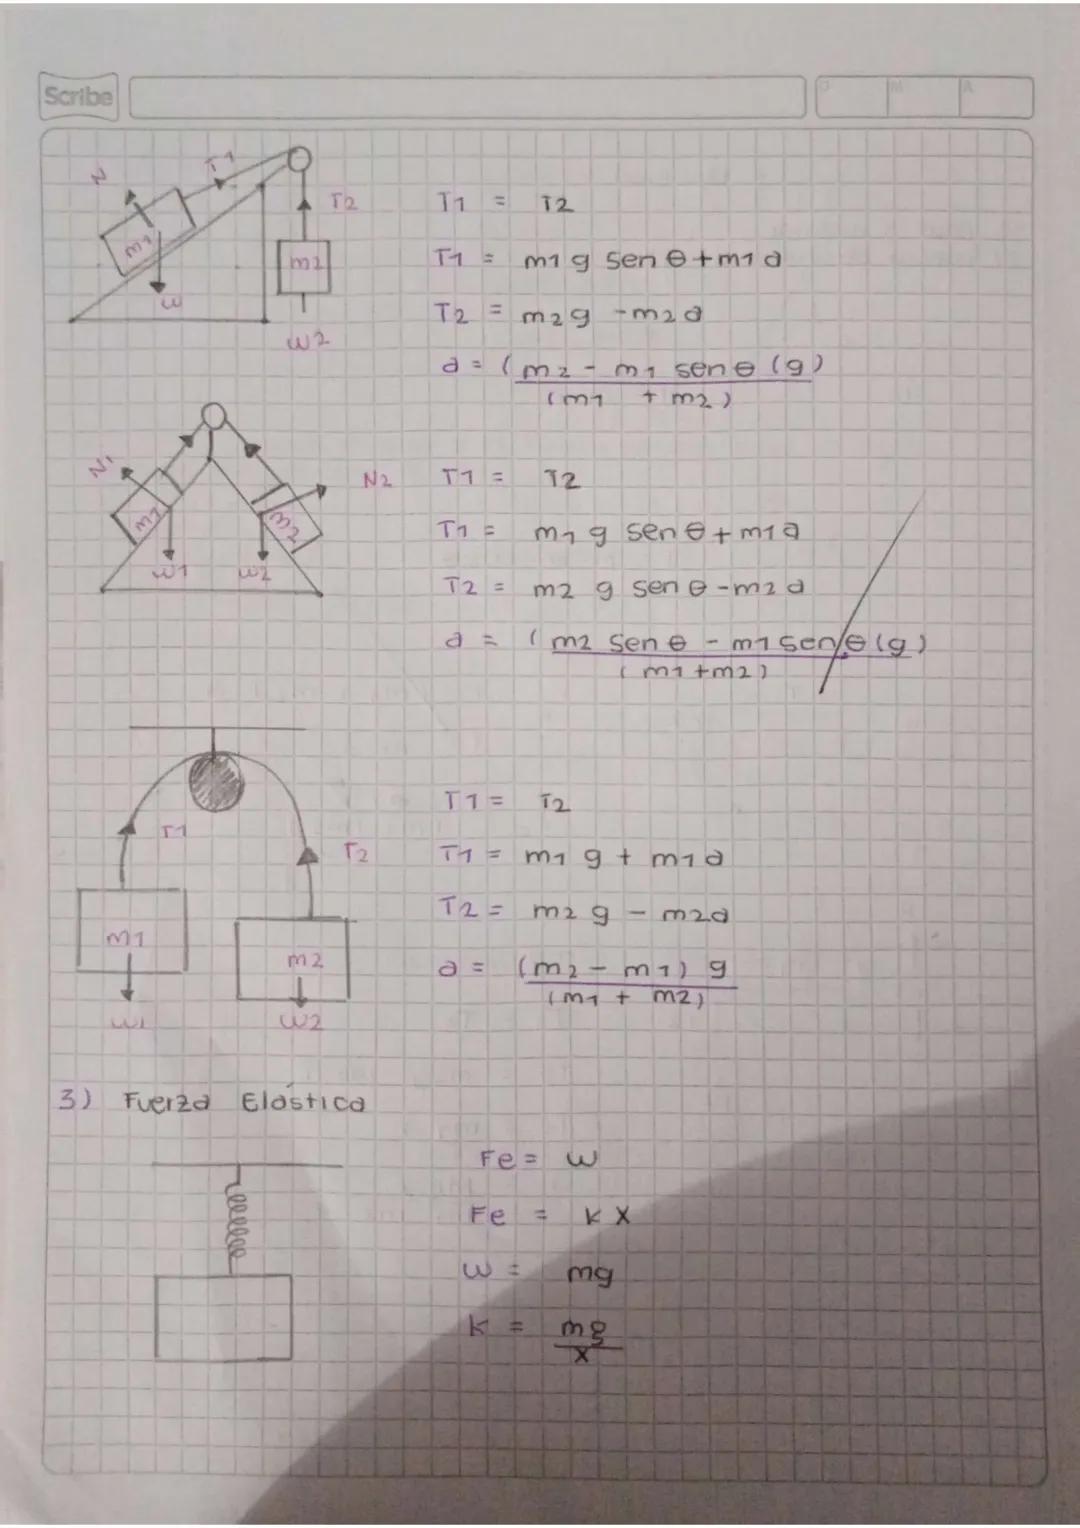 Scribe
D M A
N T1 T2
m1 m2
W W2
T1 = T2
T1 = m1 g sen θ + m1 a
T2 = m2g - m2a
a = (m2 - m1 sen θ (g)
(m1 + m2)
N1 N2
m1 m2
W1 W2
T1 = T2
T1 = m1 g sen θ + m1 a
T2 = m2 g sen θ - m2 a
a = (m2 sen θ - m1 sen θ (g)
(m1 + m2)
T1 T2
m1 m2
W1 W2
T1 = T2
T1 = m1 g + m1 a
T2 = m2 g - m2a
a = (m2 - m1) g
(m1 + m2)
3) Fuerza Elástica
Fe = W
Fe = K X
W = mg
K = mg
X